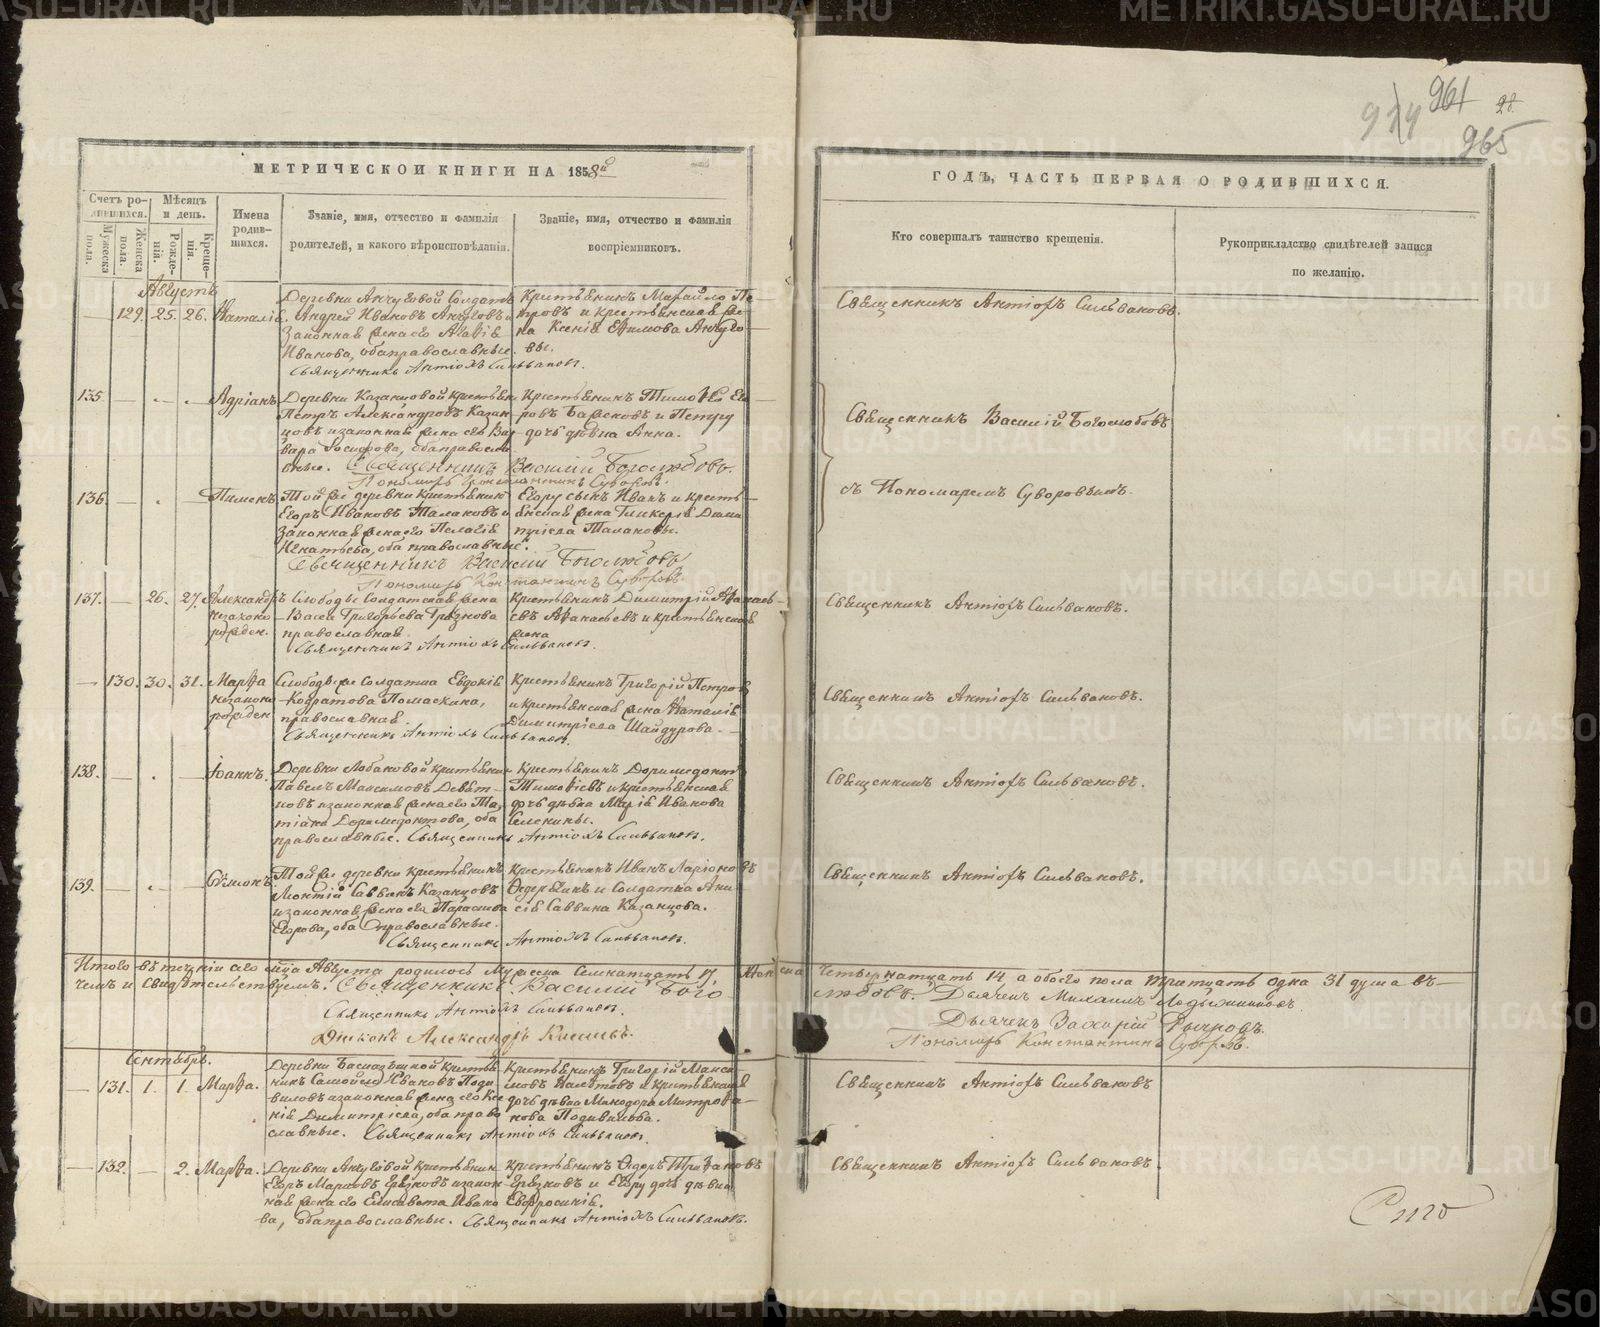 974 961 28
965
МЕТРИЧЕСКОЙ КНИГИ НА 1858й
ГОДЪ, ЧАСТЬ ПЕРВАЯ О РОДИВШИХСЯ.
Счетъ родившихся.
Мужеска пола.
Женска пола.
Мѣсяцъ и день.
Рожденія.
Крещенія.
Имена родившихся.
Званіе, имя, отчество и фамилія
родителей, и какого вѣроисповѣданія.
Званіе, имя, отчество и фамилія
воспріемниковъ.
Кто совершалъ таинство крещенія.
Рукоприкладство свидѣтелей записи
по желанію.
Августъ
129. 25. 26. Наталія.
Деревни Анчуговой Солдатъ
Андрей Ивановъ Анчуговъ и
Законная жена его Агафія
Иванова, оба православные.
Крестьянинъ Михайло Пе-
тровъ и крестьянская же-
на Ксенія Ефимова Анчуго-
вы.
Священникъ Антіохъ Сильвановъ.
Священникъ Антіохъ Сильвановъ.
135 Адріанъ
Деревни Казанцовой крестьянинъ
Петръ Александровъ Казан-
цовъ и законная жена его Вар-
вара Іосифова, оба православ-
ные. Священникъ Василій Боголюбовъ.
Пономарь Константинъ Суворовъ.
Крестьянинъ Тимофей Его-
ровъ Баженовъ и Петру
дочь дѣвка Анна.
Священникъ Василій Боголюбовъ
съ Пономаремъ Суворовымъ.
136 Пименъ
Той же деревни крестьянинъ
Егоръ Ивановъ Талановъ и
Законная жена его Пелагія
Игнатьева, оба православные.
Егору сынъ Иванъ и кресть-
янская жена Гликерія Дими-
тріева Талановы.
Священникъ Василій Боголюбовъ
Пономарь Константинъ Суворовъ.
137. 26. 27. Александръ
незаконо
рожден.
Слободы Солдатская жена
Васса Григорьева Грязнова
православная.
Крестьянинъ Димитрій Афанась-
евъ Афанасьевъ и крестьянская
жена
Священникъ Антіохъ Сильвановъ.
Священникъ Антіохъ Сильвановъ.
130. 30. 31. Марфа
незаконо
рожден
Слободы же солдатка Евдокія
Кодратова Помаскина,
православная.
Крестьянинъ Григорій Петровъ
и крестьянская жена Наталія
Димитріева Шайдурова.
Священникъ Антіохъ Сильвановъ.
Священникъ Антіохъ Сильвановъ.
138. Іоаннъ.
Деревни Лобановой крестьянинъ
Павелъ Максимовъ Девят-
ковъ и законная жена его Та-
тіана Доримедонтова, оба
православные. Священникъ Антіохъ Сильвановъ.
Крестьянинъ Доримедонтъ
Тимофіевъ и крестьянская
дочь дѣвка Марія Иванова
Селенины.
Священникъ Антіохъ Сильвановъ.
139. Сѵмеонъ.
Той же деревни крестьянинъ
Леонтій Саввинъ Казанцовъ
и законная жена его Параскева
Егорова, оба православные.
Крестьянинъ Иванъ Ларіоновъ
и Солдатка Ани-
сія Саввина Казанцова.
Священникъ Антіохъ Сильвановъ.
Священникъ Антіохъ Сильвановъ.
Итого въ теченіи сего мца Августа родилось Мужеска Семнатцать 17, Женска Четырнатцать 14 а обоего пола Тритцать одна 31 душа въ
чемъ и свидѣтельствуемъ. Священникъ Василій Бого-
любовъ. Дьячекъ Михаилъ Ладыжниковъ
Священникъ Антіохъ Сильвановъ.
Дьячекъ Захарій Рычковъ.
Діаконъ Александръ Киселевъ.
Пономарь Константинъ Суворовъ.
Сентябрь.
131. 1. 1. Марфа.
кресть-
нинъ Самойло Ивановъ Поди-
виловъ и законная жена его Ксе-
нія Димитріева, оба право-
славные. Священникъ Антіохъ Сильвановъ.
Крестьянинъ Григорій Макси-
мовъ и крестьянская
дочь дѣвка Минодора Митрофа-
нова Подивилова.
Священникъ Антіохъ Сильвановъ
132. 2. Марфа.
Деревни Анчуговой крестьянинъ
Егоръ Марковъ и закон-
ная жена его Елисавета Ивано-
ва, оба православные. Священникъ Антіохъ Сильвановъ.
Крестьянинъ Ѳедоръ Трифановъ
и Егору дочь дѣвка
Евфросинія.
Священникъ Антіохъ Сильвановъ.
METRIKI.GASO-URAL.RU